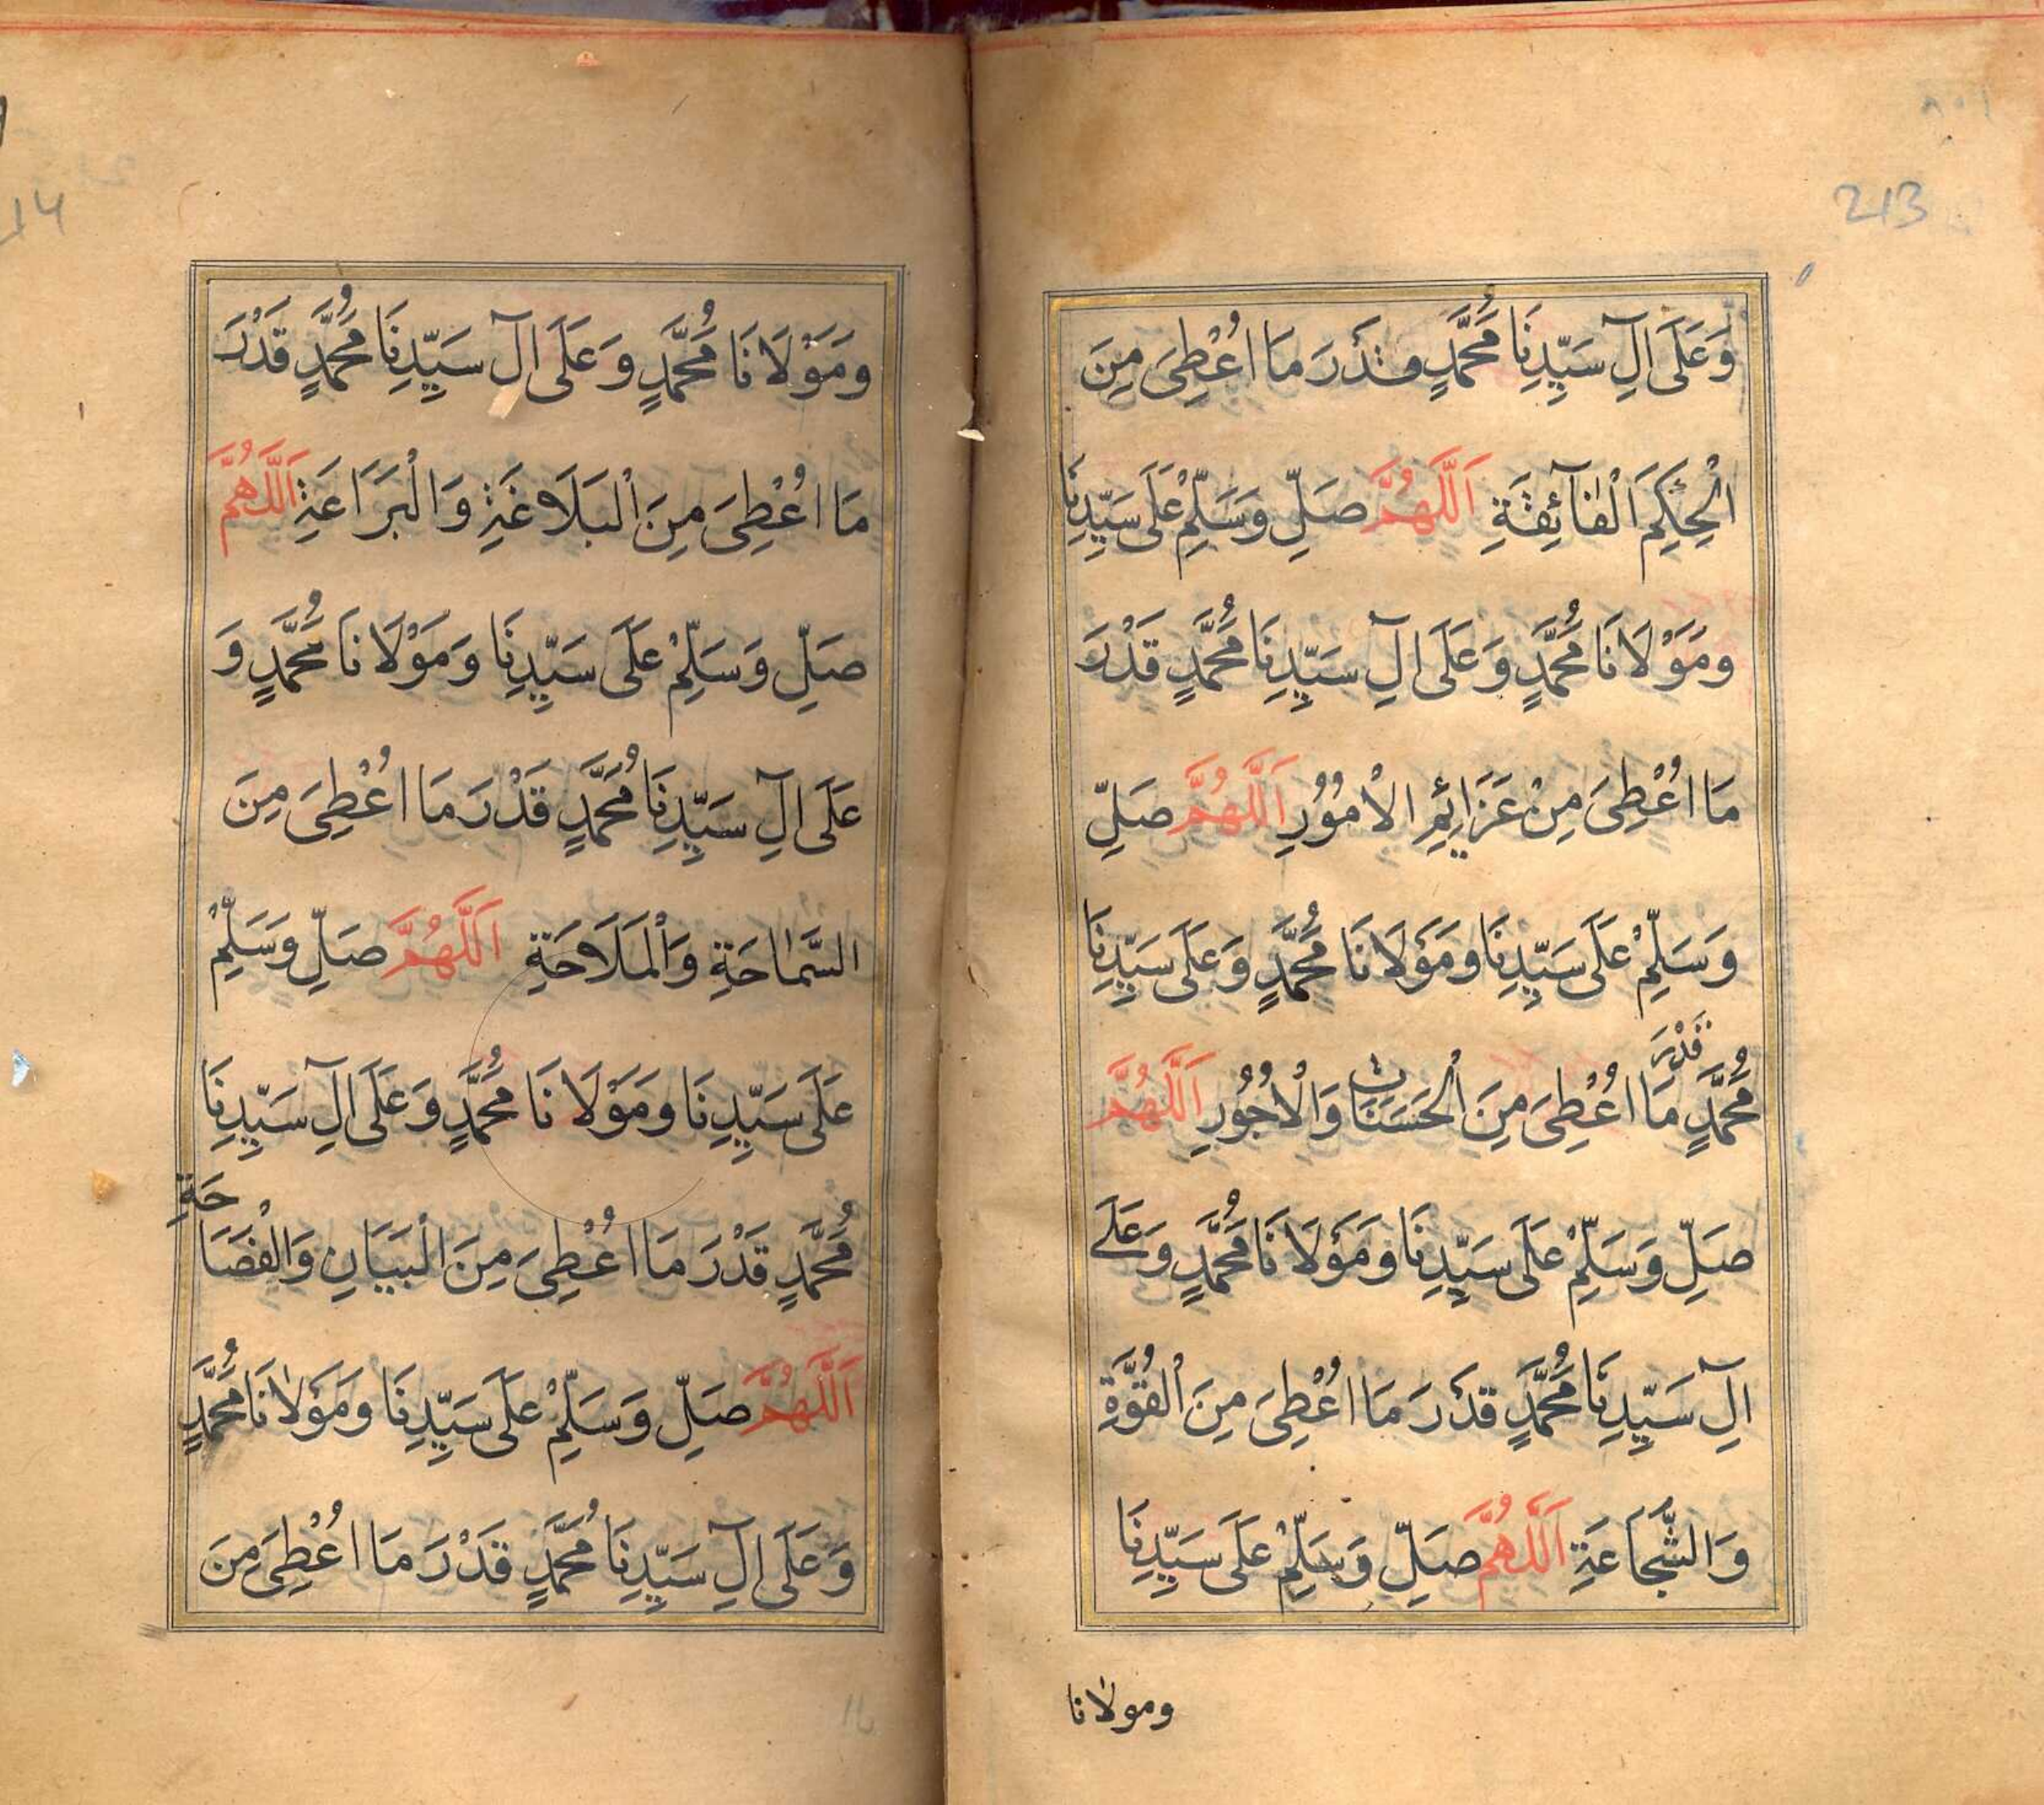 213
وَعَلَى اٰلِ سَيِّدِنَا مُحَمَّدٍ قَدْرَ مَا اُعْطِىَ مِنَ
الْحِكَمِ الْفَآئِقَةِ اَللّٰهُمَّ صَلِّ وَسَلِّمْ عَلَى سَيِّدِنَا
وَمَوْلَانَا مُحَمَّدٍ وَعَلَى اٰلِ سَيِّدِنَا مُحَمَّدٍ قَدْرَ
مَا اُعْطِىَ مِنْ عَزَائِمِ الْاُمُوْرِ اَللّٰهُمَّ صَلِّ
وَسَلِّمْ عَلَى سَيِّدِنَا وَمَوْلَانَا مُحَمَّدٍ وَعَلَى سَيِّدِنَا
مُحَمَّدٍ قَدْرَ مَا اُعْطِىَ مِنَ الْحَسَنَاتِ وَالْاُجُوْرِ اَللّٰهُمَّ
صَلِّ وَسَلِّمْ عَلَى سَيِّدِنَا وَمَوْلَانَا مُحَمَّدٍ وَعَلٰے
اٰلِ سَيِّدِنَا مُحَمَّدٍ قَدْرَ مَا اُعْطِىَ مِنَ الْقُوَّةِ
وَالشَّجَاعَةِ اَللّٰهُمَّ صَلِّ وَسَلِّمْ عَلَى سَيِّدِنَا
ومولانا
وَمَوْلَانَا مُحَمَّدٍ وَعَلَى اٰلِ سَيِّدِنَا مُحَمَّدٍ قَدْرَ
مَا اُعْطِىَ مِنَ الْبَلَاغَةِ وَالْبَرَاعَةِ اَللّٰهُمَّ
صَلِّ وَسَلِّمْ عَلَى سَيِّدِنَا وَمَوْلَانَا مُحَمَّدٍ وَ
عَلَى اٰلِ سَيِّدِنَا مُحَمَّدٍ قَدْرَ مَا اُعْطِىَ مِنَ
السَّمَاحَةِ وَالْمَلَاحَةِ اَللّٰهُمَّ صَلِّ وَسَلِّمْ
عَلَى سَيِّدِنَا وَمَوْلَانَا مُحَمَّدٍ وَعَلَى اٰلِ سَيِّدِنَا
مُحَمَّدٍ قَدْرَ مَا اُعْطِىَ مِنَ الْبَيَانِ وَالْفَصَاحَةِ
اَللّٰهُمَّ صَلِّ وَسَلِّمْ عَلَى سَيِّدِنَا وَمَوْلَانَا مُحَمَّدٍ
وَعَلَى اٰلِ سَيِّدِنَا مُحَمَّدٍ قَدْرَ مَا اُعْطِىَ مِنَ